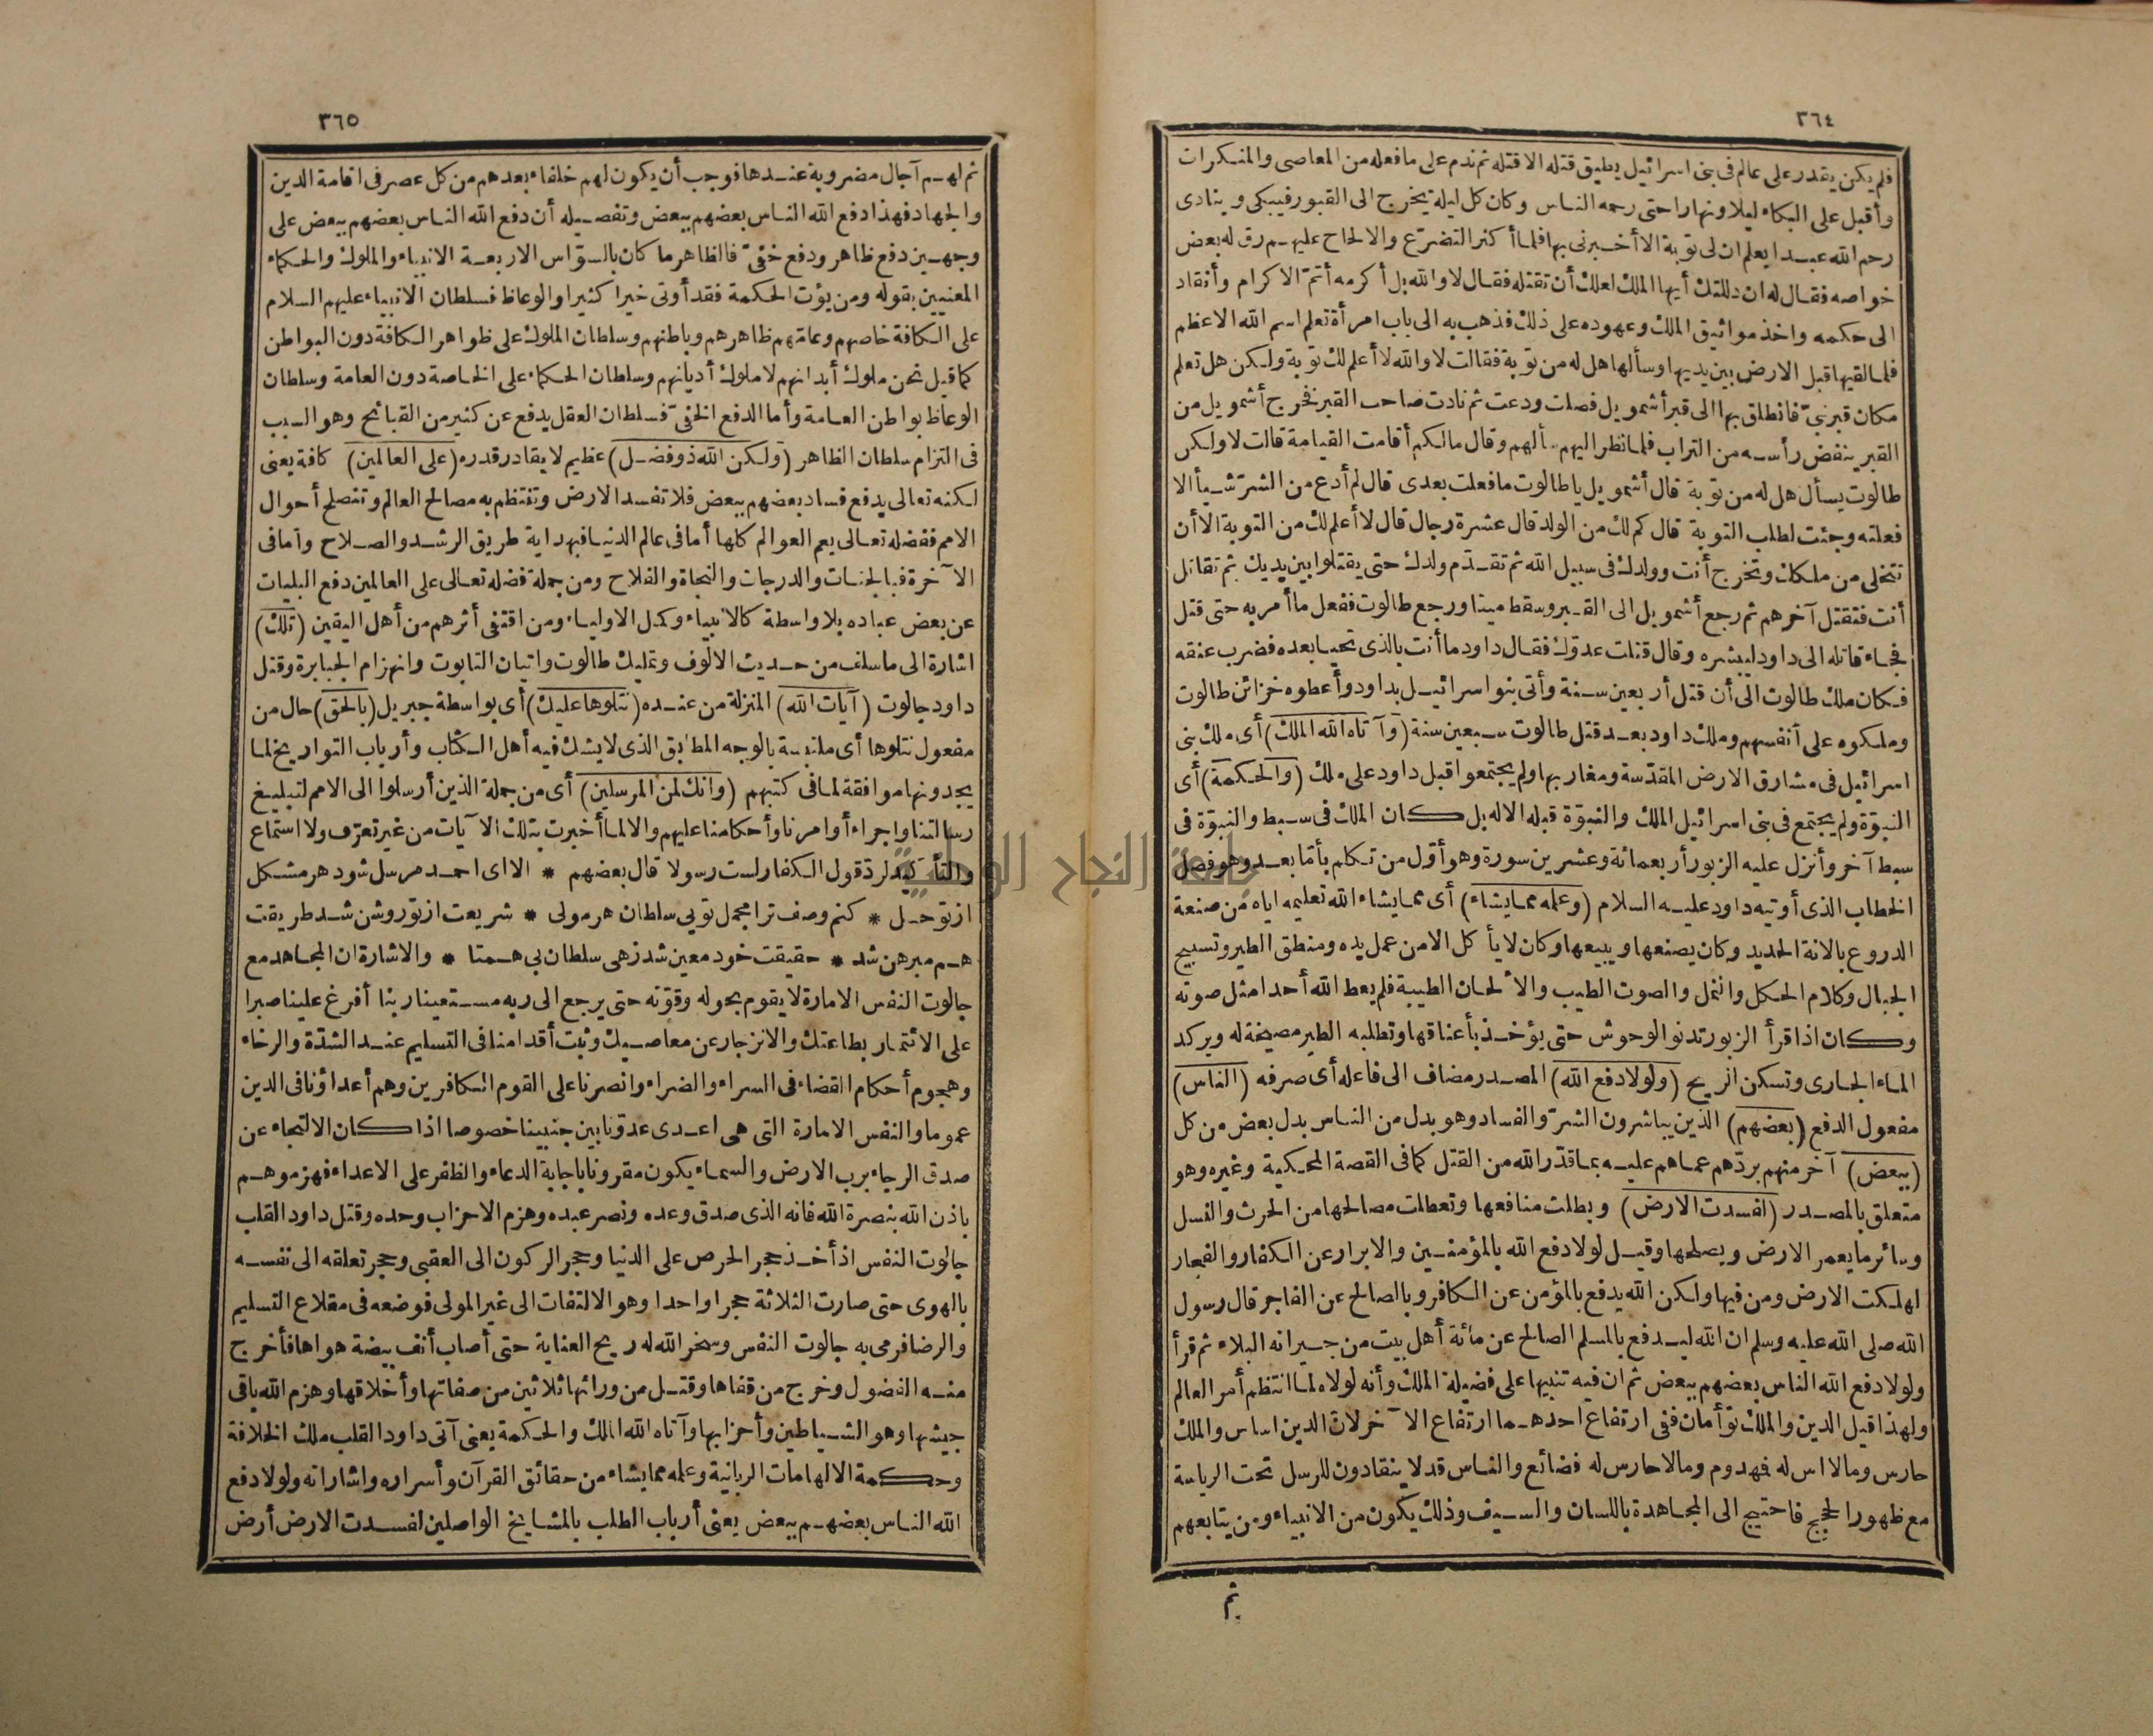 ٣٦٤
فلم يكن يقدر على عالم فى بنى اسرائيل يطيق قتله الا قتله ثم ندم على ما فعله من المعاصى والمنكرات
وأقبل على البكاء ليلا ونهارا حتى رحمه الناس وكان كل ليلة يخرج الى القبور فيبكى وينادى
رحم الله عبدا يعلم ان لى توبة الا أخبرنى بها فلما أكثر التضرّع والالحاح عليهم رق له بعض
خواصه فقال له ان دللتك أيها الملك لعلك أن تقتله فقال لا والله بل أكرمه أتمّ الاكرام وأنقاد
الى حكمه واخذ مواثيق الملك وعهوده على ذلك فذهب به الى باب امرأة تعلم اسم الله الاعظم
فلما لقيها قبل الارض بين يديها وسألها هل له من توبة فقالت لا والله لا أعلم لك توبة ولكن هل تعلم
مكان قبر نبىّ فانطلق بها الى قبر أشمويل فصلت ودعت ثم نادت صاحب القبر فخرج أشمويل من
القبر ينفض رأسه من التراب فلما نظر اليهم سألهم وقال مالكم أقامت القيامة قالت لا ولكن
طالوت يسأل هل له من توبة قال أشمويل يا طالوت ما فعلت بعدى قال لم أدع من الشرّ شيأ الا
فعلته وجئت لطلب التوبة قال كم لك من الولد قال عشرة رجال قال لا أعلم لك من التوبة الا أن
تتخلى من ملكك وتخرج أنت وولدك فى سبيل الله ثم تقدّم ولدك حتى يقتلوا بين يديك ثم تقاتل
أنت فتقتل آخرهم ثم رجع أشمويل الى القبر وسقط ميتا ورجع طالوت ففعل ما أمر به حتى قتل
فجاء قاتله الى داود ليبشره وقال قتلت عدوّك فقال داود ما أنت بالذى تحيا بعده فضرب عنقه
فكان ملك طالوت الى أن قتل أربعين سنة وأتى بنو اسرائيل بداود وأعطوه خزائن طالوت
وملكوه على أنفسهم وملك داود بعد قتل طالوت سبعين سنة (وآتاه الله الملك) أى ملك بنى
اسرائيل فى مشارق الارض المقدّسة ومغاربها ولم يجتمعوا قبل داود على ملك (والحكمة) أى
النبوّة ولم يجتمع فى بنى اسرائيل الملك والنبوّة قبله الا له بل كان الملك فى سبط والنبوّة فى
سبط آخر وأنزل عليه الزبور أربعمائة وعشرين سورة وهو أوّل من تكلم بأمّا بعد وهو فصل
الخطاب الذى أوتيه داود عليه السلام (وعلمه مما يشاء) أى مما يشاء الله تعليمه اياه من صنعة
الدروع بالانة الحديد وكان يصنعها ويبيعها وكان لا يأكل الا من عمل يده ومنطق الطير وتسبيح
الجبال وكلام الحكل والنمل والصوت الطيب والألحان الطيبة فلم يعط الله أحدا مثل صوته
وكان اذا قرأ الزبور تدنو الوحوش حتى يؤخذ بأعناقها وتظلبه الطير مصيخة له ويركد
الماء الجارى وتسكن الريح (ولولا دفع الله) المصدر مضاف الى فاعله أى صرفه (الناس)
مفعول الدفع (بعضهم) الذين يباشرون الشرّ والفساد وهو بدل من الناس بدل بعض من كل
(ببعض) آخر منهم بردّهم عما هم عليه بما قدّر الله من القتل كما فى القصة المحكية وغيره وهو
متعلق بالمصدر (لفسدت الارض) وبطلت منافعها وتعطلت مصالحها من الحرث والنسل
وسائر ما يعمر الارض ويصلحها وقيل لولا دفع الله بالمؤمنين والابرار عن الكفار والفجار
لهلكت الارض ومن فيها ولكن الله يدفع بالمؤمن عن الكافر وبالصالح عن الفاجر قال رسول
الله صلى الله عليه وسلم ان الله ليدفع بالمسلم الصالح عن مائة أهل بيت من جيرانه البلاء ثم قرأ
ولولا دفع الله الناس بعضهم ببعض ثم ان فيه تنبيها على فضيلة الملك وأنه لولاه لما انتظم أمر العالم
ولهذا قيل الدين والملك توأمان ففى ارتفاع احدهما ارتفاع الآخر لان الدين اساس والملك
حارس وما لا اس له فهدوم وما لا حارس له فضائع والناس قد لا ينقادون للرسل تحت الرياسة
مع ظهور الحجج فاحتيج الى المجاهدة باللسان والسيف وذلك يكون من الانبياء ومن يتابعهم
ثم
٣٦٥
ثم لهم آجال مضروبة عندها فوجب أن يكون لهم خلفاء بعدهم من كل عصر فى اقامة الدين
والجهاد فهذا دفع الله الناس بعضهم ببعض وتفصيله أن دفع الله الناس بعضهم ببعض على
وجهين دفع ظاهر ودفع خفىّ فالظاهر ما كان بالسوّاس الاربعة الانبياء والملوك والحكماء
المعنيين بقوله ومن يؤت الحكمة فقد أوتى خيرا كثيرا والوعاظ فسلطان الانبياء عليهم السلام
على الكافة خاصهم وعامّهم ظاهرهم وباطنهم وسلطان الملوك على ظواهر الكافة دون البواطن
كما قيل نحن ملوك أبدانهم لا ملوك أديانهم وسلطان الحكماء على الخاصة دون العامة وسلطان
الوعاظ بواطن العامة وأما الدفع الخفىّ فسلطان العقل يدفع عن كثير من القبائح وهو السبب
فى التزام سلطان الظاهر (ولكن الله ذو فضل) عظيم لا يقادر قدره (على العالمين) كافة يعنى
لكنه تعالى يدفع فساد بعضهم ببعض فلا تفسد الارض وتنتظم به مصالح العالم وتنصلح أحوال
الامم ففضله تعالى يعم العوالم كلها أما فى عالم الدنيا فبهداية طريق الرشد والصلاح وأما فى
الآخرة فبالجنات والدرجات والنجاة والفلاح ومن جملة فضله تعالى على العالمين دفع البليات
عن بعض عباده بلا واسطة كالانبياء وكمل الاولياء ومن اقتفى أثرهم من أهل اليقين (تلك)
اشارة الى ما سلف من حديث الالوف وتمليك طالوت واتيان التابوت وانهزام الجبابرة وقتل
داود جالوت (آيات الله) المنزلة من عنده (نتلوها عليك) أى بواسطة جبريل (بالحق) حال من
مفعول نتلوها أى ملتبسة بالوجه المطابق الذى لا يشك فيه أهل الكتاب وأرباب التواريخ لما
يجدونها موافقة لما فى كتبهم (وانك لمن المرسلين) أى من جملة الذين أرسلوا الى الامم لتبليغ
رسالتنا واجراء أوامرنا وأحكامنا عليهم والا لما أخبرت بتلك الآيات من غير تعرّف ولا استماع
والتأكيد لردّ قول الكفار لست رسولا قال بعضهم * الا اى احمد مرسل شود هر مشكل
از تو حل * كنم وصف ترا مجمل تويى سلطان هر مولى * شريعت از تو روشن شد طريقت
هم مبرهن شد * حقيقت خود معين شد زهى سلطان بى همتا * والاشارة ان المجاهد مع
جالوت النفس الامارة لا يقوم بحوله وقوّته حتى يرجع الى ربه مستعينا ربنا أفرغ علينا صبرا
على الائتمار بطاعتك والانزجار عن معاصيك وثبت أقدامنا فى التسليم عند الشدّة والرخاء
وهجوم أحكام القضاء فى السراء والضراء وانصرنا على القوم الكافرين وهم أعداؤنا فى الدين
عموما والنفس الامارة التى هى اعدى عدوّنا بين جنبينا خصوصا اذا كان الالتجاء عن
صدق الرجاء برب الارض والسماء يكون مقرونا باجابة الدعاء والظفر على الاعداء فهزموهم
باذن الله بنصرة الله فانه الذى صدق وعده ونصر عبده وهزم الاحزاب وحده وقتل داود القلب
جالوت النفس اذ أخذ حجر الحرص على الدنيا وحجر الركون الى العقبى وحجر تعلقه الى نفسه
بالهوى حتى صارت الثلاثة حجرا واحدا وهو الالتفات الى غير المولى فوضعه فى مقلاع التسليم
والرضا فرمى به جالوت النفس وسخر الله له ريح العناية حتى أصاب أنف بيضة هواها فأخرج
منه الفضول وخرج من قفاها وقتل من ورائها ثلاثين من صفاتها وأخلاقها وهزم الله باقى
جيشها وهو الشياطين وأحزابها وآتاه الله الملك والحكمة يعنى آتى داود القلب ملك الخلافة
وحكمة الالهامات الربانية وعلمه مما يشاء من حقائق القرآن وأسراره واشاراته ولولا دفع
الله الناس بعضهم ببعض يعنى أرباب الطلب بالمشايخ الواصلين لفسدت الارض أرض
جامعة النجاح الوطنية